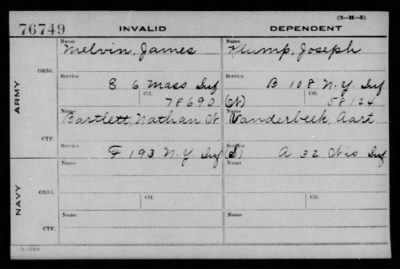 (3-H-3)
76749 INVALID DEPENDENT
Name Name
Melvin, James Klump, Joseph
ORIG. Service Service
8 6 Mass Inf B 108 N.Y. Inf
Ctf. Ctf.
78690 (W) 58124
ARMY
Name Name
Bartlett, Nathan W Vanderbeek, Aart
CTF. Service Service
F 193 N.Y. Inf (S) A 32 Wis Inf
Name Name
ORIG. Ctf. Ctf.
NAVY
Name Name
CTF.